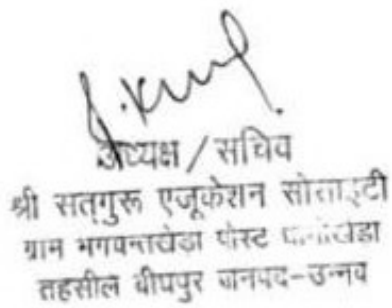 अध्यक्ष / सचिव
श्री सतगुरू एजूकेशन सोसाइटी
ग्राम भगवन्तखेड़ा पोस्ट
तहसील बीघपुर जनपद-उन्नव